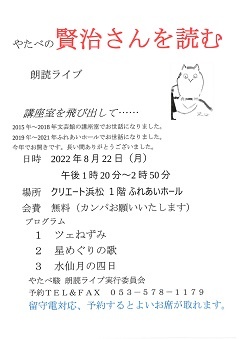 やたべの 賢治さんを読む
朗読ライブ
講座室を飛び出して……
2015年～2018年文芸館の講座室でお世話になりました。
2019年～2021年ふれあいホールでお世話になりました。
今年でお開きです。長い間ありがとうございました。
日時 2022年8月22日（月）
午後1時20分～2時50分
場所 クリエート浜松 1階 ふれあいホール
会費 無料（カンパお願いいたします）
プログラム
1 ツェねずみ
2 星めぐりの歌
3 水仙月の四日
やたべ駿 朗読ライブ実行委員会
予約TEL&FAX 053-578-1179
留守電対応、予約するとよいお席が取れます。